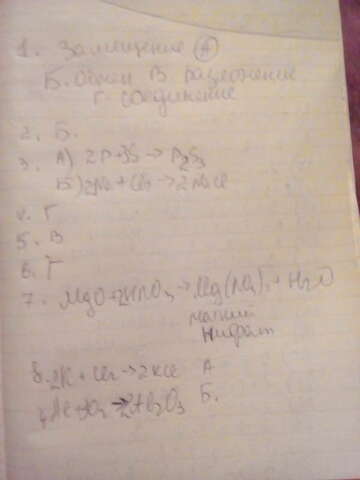 1. Замещение А
Б. Обмен В. разложение
Г. соединение
2. Б.
3. А) 2P+3S→P₂S₃
Б) 2Na+Cl₂→2NaCl
4. Г
5. В
6. Г
7. MgO+2HNO₃→Mg(NO₃)₂+H₂O
магний
нитрат
8. 2K+Cl₂→2KCl А
4Al+3O₂→2Al₂O₃ Б.